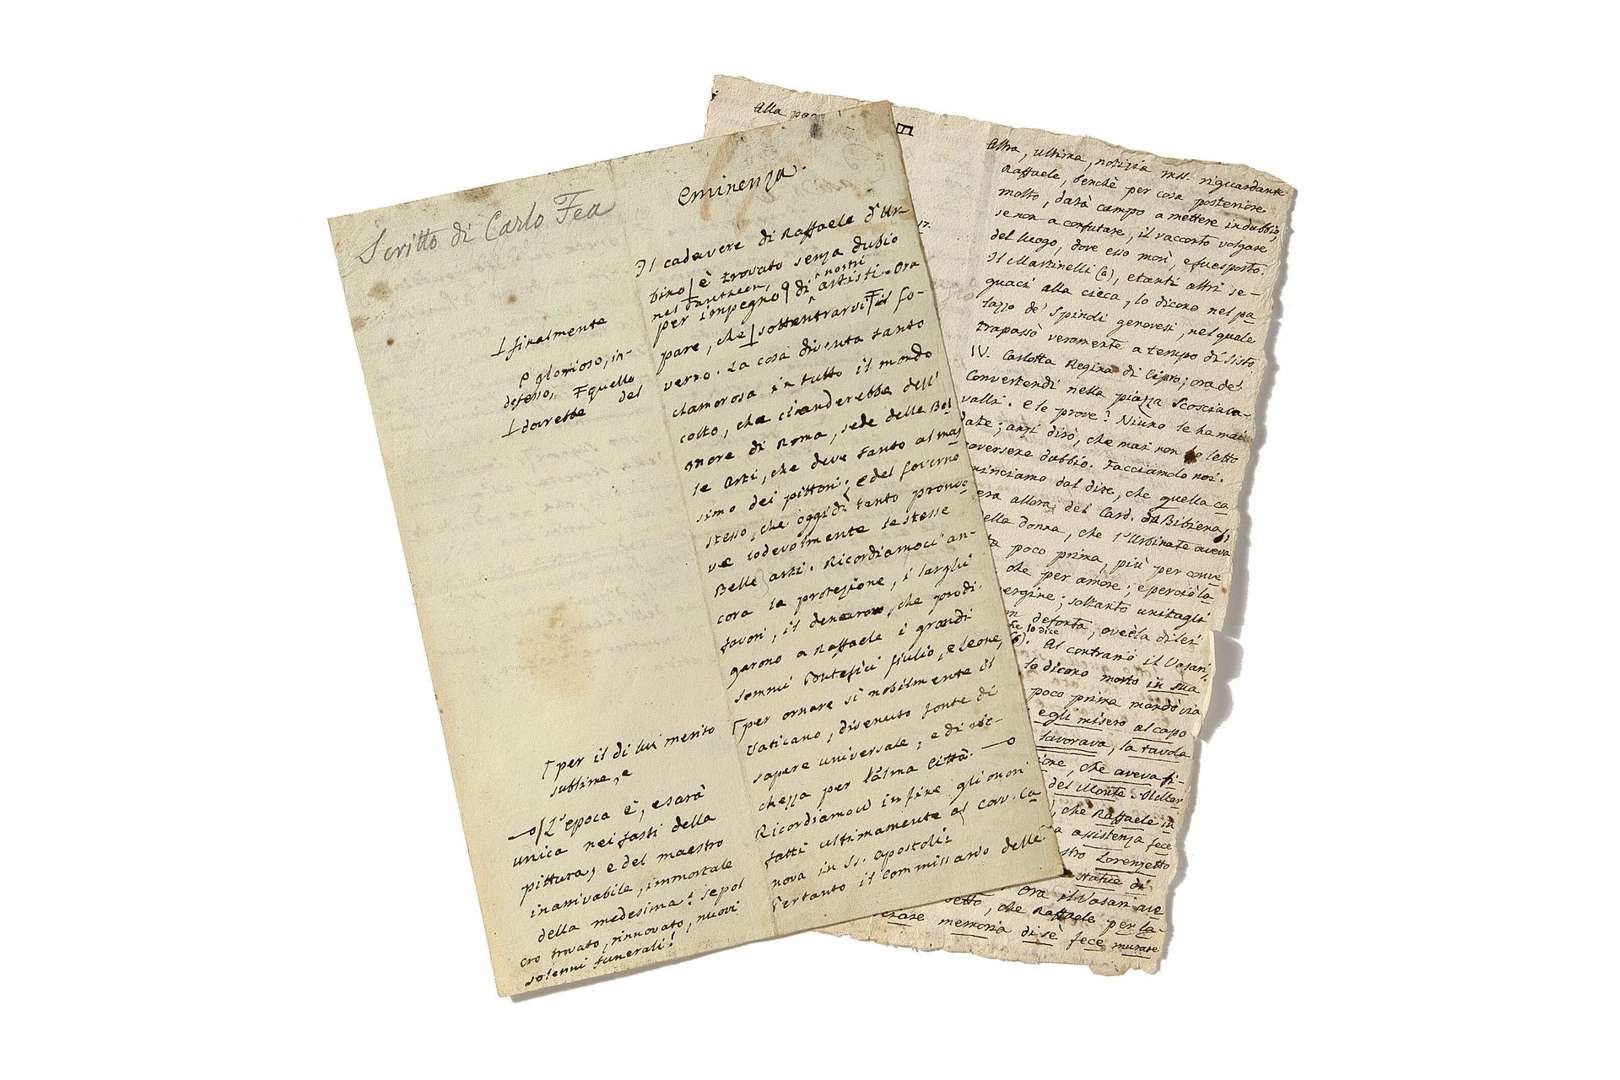 Scritto di Carlo Fea
Eminenza.
Il cadavere di Raffaele d'Ur-
bino è trovato senza dubio
nel Panteon,
per impegno di nostri artisti. Ora
pare, che sottentrarvi il Go-
verno. La cosa diventa tanto
clamorosa in tutto il mondo
colto, che ci anderebbe dell'
onore di Roma, sede delle Bel
le arti, che deve tanto al mas
simo dei pittori; e del Governo
stesso, che oggidì tanto promo
ve lodevolmente le stesse
Belle arti. Ricordiamoci an-
cora la protezione, i larghi
favori, il denaro, che prodi
garono a Raffaele i grandi
sommi Pontefici Giulio, e Leone,
per ornare sì nobilmente il
Vaticano, divenuto fonte di
sapere universale; e di ric-
chezza per l'alma Città.
Ricordiamoci in fine gli onori
fatti ultimamente al Cav. Ca
nova in SS. Apostoli:
Pertanto il Commissario delle
finalmente
glorioso, in-
defesso, quello
dovrebbe del
per il di lui merito
sublime, e
L'epoca è, e sarà
unica nei fasti della
pittura, e del maestro
inarrivabile, immortale
della medesima! Sepol
cro trovato, rinnovato, nuovi
solenni funerali!
Alla
17.
Altra, ultima, notizia mss. riguardante
Raffaele, benchè per cosa posteriore
molto, darà campo a mettere in dubbio,
se non a confutare, il racconto volgare
del luogo, dove esso morì, e fu esposto.
Il Martinelli (a), e tanti altri se-
guaci alla cieca, lo dicono nel pa
lazzo de' Spinoli genovesi, nel quale
trapassò veramente a tempo di Sisto
IV. Carlotta Regina di Cipro; ora de'
Convertendi nella piazza Scosciaca-
valli. E le prove? Niuno le ha mai
date; anzi dirò, che mai non ho letto
dubbio. Facciamolo noi.
dal dire, che quella ca
era allora del Card. da Bibiena,
donna, che l'Urbinate aveva
poco prima, più per conve
che per amore; e perciò la
soltanto
defonta, ov'è la di lei
lo dice
(b). Al contrario il Vasari,
lo dicono morto in sua
poco prima mandò via
egli misero al capo
lavorava, la tavola
che aveva fi-
del Monte.
che Raffaele in
assistenza fece
Lorenzetto
statue di
Ora il Vasari ave
che Raffaele per la-
memoria di sè fece murare